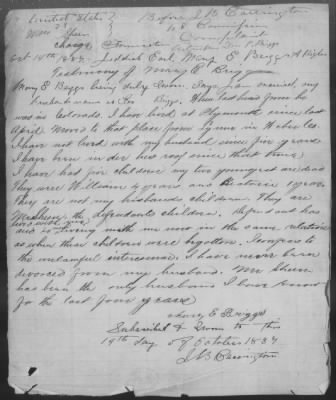 United States Before J B Carrington
vs US Commissioner
Complaint
charge Fornication
Oct 19th 1887 Jedediah Earl, Mary E Briggs
Testimony of Mary E Briggs
Mary E Briggs being duly sworn. Says I am married, my
husbands name is Briggs. When last heard from he
was in Colorado. I have lived at Plymouth since last
April. Moved to that place from in
I have not lived with my husband since for years
I have been under his roof since that time,
I have had four children my two youngest are dead
They were William 4 years and Beatrice 1 year
They are not my husbands children. They are
the defendants children. Defendant has
and is living with me now in the same relation
as when these children were begotten. I confess to
the unlawful intercourse. I have never been
divorced from my husband. Mr
has been the only husband I have known
for the last four years
Mary E Briggs
Subscribed & Sworn to this
19th day of October 1887
J B Carrington